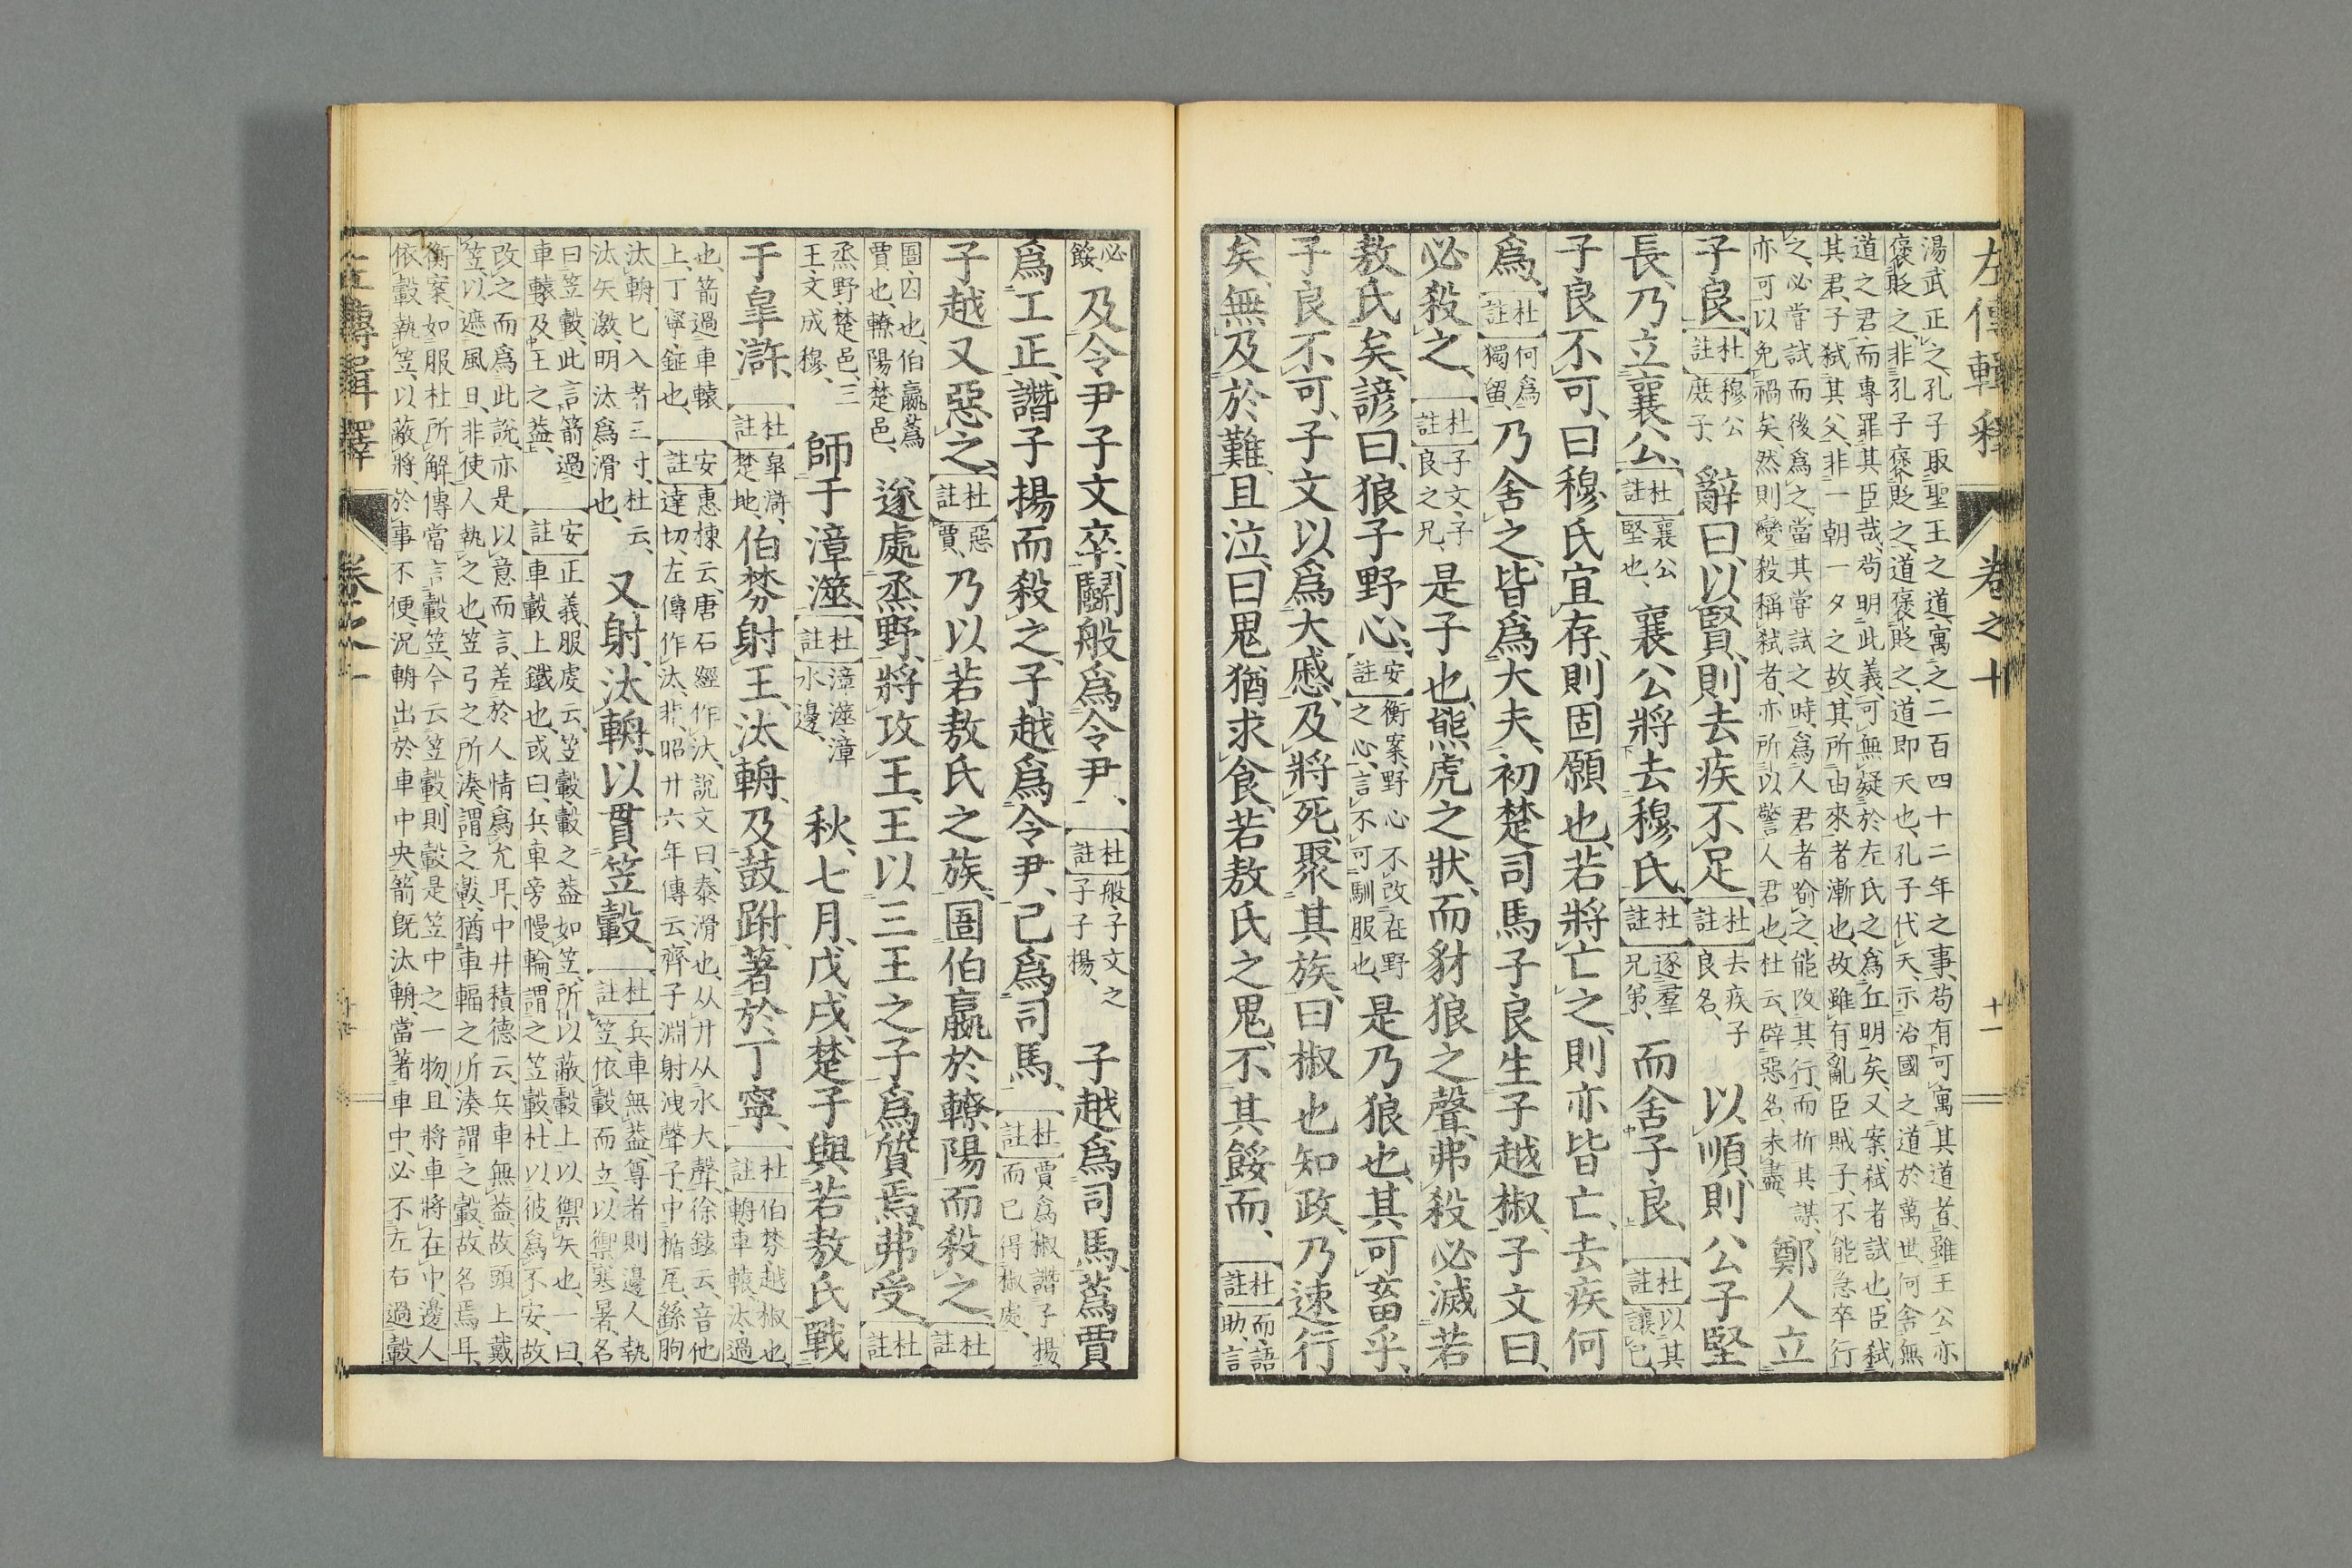 左傳輯釋　卷之十　十一
湯武正之、孔子取聖王之道、寓之二百四十二年之事、苟有可寓其道者、雖王公亦
褒貶之、非孔子褒貶之、道褒貶之、道即天也、孔子代天、示治國之道於萬世、何舍無
道之君、而專罪其臣哉、苟明此義、可無疑於左氏之爲丘明矣、又案、弑者試也、臣弑
其君、子弑其父、非一朝一夕之故、其所由來者漸也、故雖有亂臣賊子、不能急卒行
之、必嘗試而後爲之、當其嘗試之時、爲人君者喻之、能改其行、而折其謀、
亦可以免禍矣、然則變殺稱弑者、亦所以警人君也、杜云、辟惡名、未盡、
鄭人立
子良、
杜註
穆公
庶子、
辭曰、以賢、則去疾不足、
杜註
去疾子
良名、
以順、則公子堅
長、乃立襄公、
杜註
襄公
堅也、
襄公將去穆氏、
杜註
逐羣
兄弟、
而舍子良、
杜註
以其
讓已、
子良不可、曰穆氏宜存、則固願也、若將亡之、則亦皆亡、去疾何
爲、
杜註
何爲
獨留、
乃舍之、皆爲大夫、初楚司馬子良生子越椒、子文曰、
必殺之、
杜註
子文、子
良之兄、
是子也、熊虎之狀、而豺狼之聲、弗殺必滅若
敖氏矣、諺曰、狼子野心、
安註
衡案、野心不改、在野
之心、言不可馴服也、
是乃狼也、其可畜乎、
子良不可、子文以爲大慼、及將死、聚其族、曰椒也知政、乃速行
矣、無及於難、且泣曰、鬼猶求食、若敖氏之鬼、不其餒而、
杜註
而、語
助、言
必
餒、
及令尹子文卒、鬬般爲令尹、
杜註
般、子文之
子子揚、
子越爲司馬、蒍賈
爲工正、譖子揚而殺之、子越爲令尹、己爲司馬、
杜註
賈爲椒譖子揚
而已得椒處、
子越又惡之、
杜註
惡
賈、
乃以若敖氏之族、圄伯嬴於轑陽而殺之、
杜註
圄、囚也、伯嬴、蒍
賈也、轑陽、楚邑、
遂處烝野、將攻王、王以三王之子爲質焉、弗受、
杜註
烝野、楚邑、三
王、文成穆、
師于漳澨、
杜註
漳澨、漳
水邊、
秋、七月、戊戌、楚子與若敖氏戰
于皐滸、
杜註
皐滸、
楚地、
伯棼射王、汰輈、及鼓跗、著於丁寧、
杜註
伯棼、越椒也、
輈、車轅、汰、過
也、箭過車轅
上、丁寧、鉦也、
安註
惠棟云、唐石經作汏、說文曰、泰、滑也、从廾从水大聲、徐鉉云、音他
達切、左傳作汰、非、昭廿六年傳云、齊子淵射洩聲子、中楯瓦、繇朐
汰輈、匕入者三寸、杜云、
汰矢激、明汰爲滑也、
又射、汰輈、以貫笠轂、
杜註
兵車無蓋、尊者則邊人執
笠、依轂而立、以禦寒暑、名
曰笠轂、此言箭過
車轅、及王之蓋、
安註
正義、服虔云、笠轂、轂之蓋如笠、所以蔽轂上以禦矢也、一曰、
車轂上鐵也、或曰、兵車旁幔輪、謂之笠轂、杜以彼爲不安、故
改之而爲此說、亦是以意而言、差於人情爲允耳、中井積德云、兵車無蓋、故頭上戴
笠、以遮風日、非使人執之也、笠弓之所湊、謂之轂、猶車輻之所湊謂之轂、故名焉耳、
衡案、如服杜所解、傳當言轂笠、今云笠轂、則轂是笠中之一物、且將車將在中、邊人
依轂執笠、以蔽將、於事不便、況輈出於車中央、箭既汰輈、當著車中、必不左右過轂
左傳輯釋　卷之十